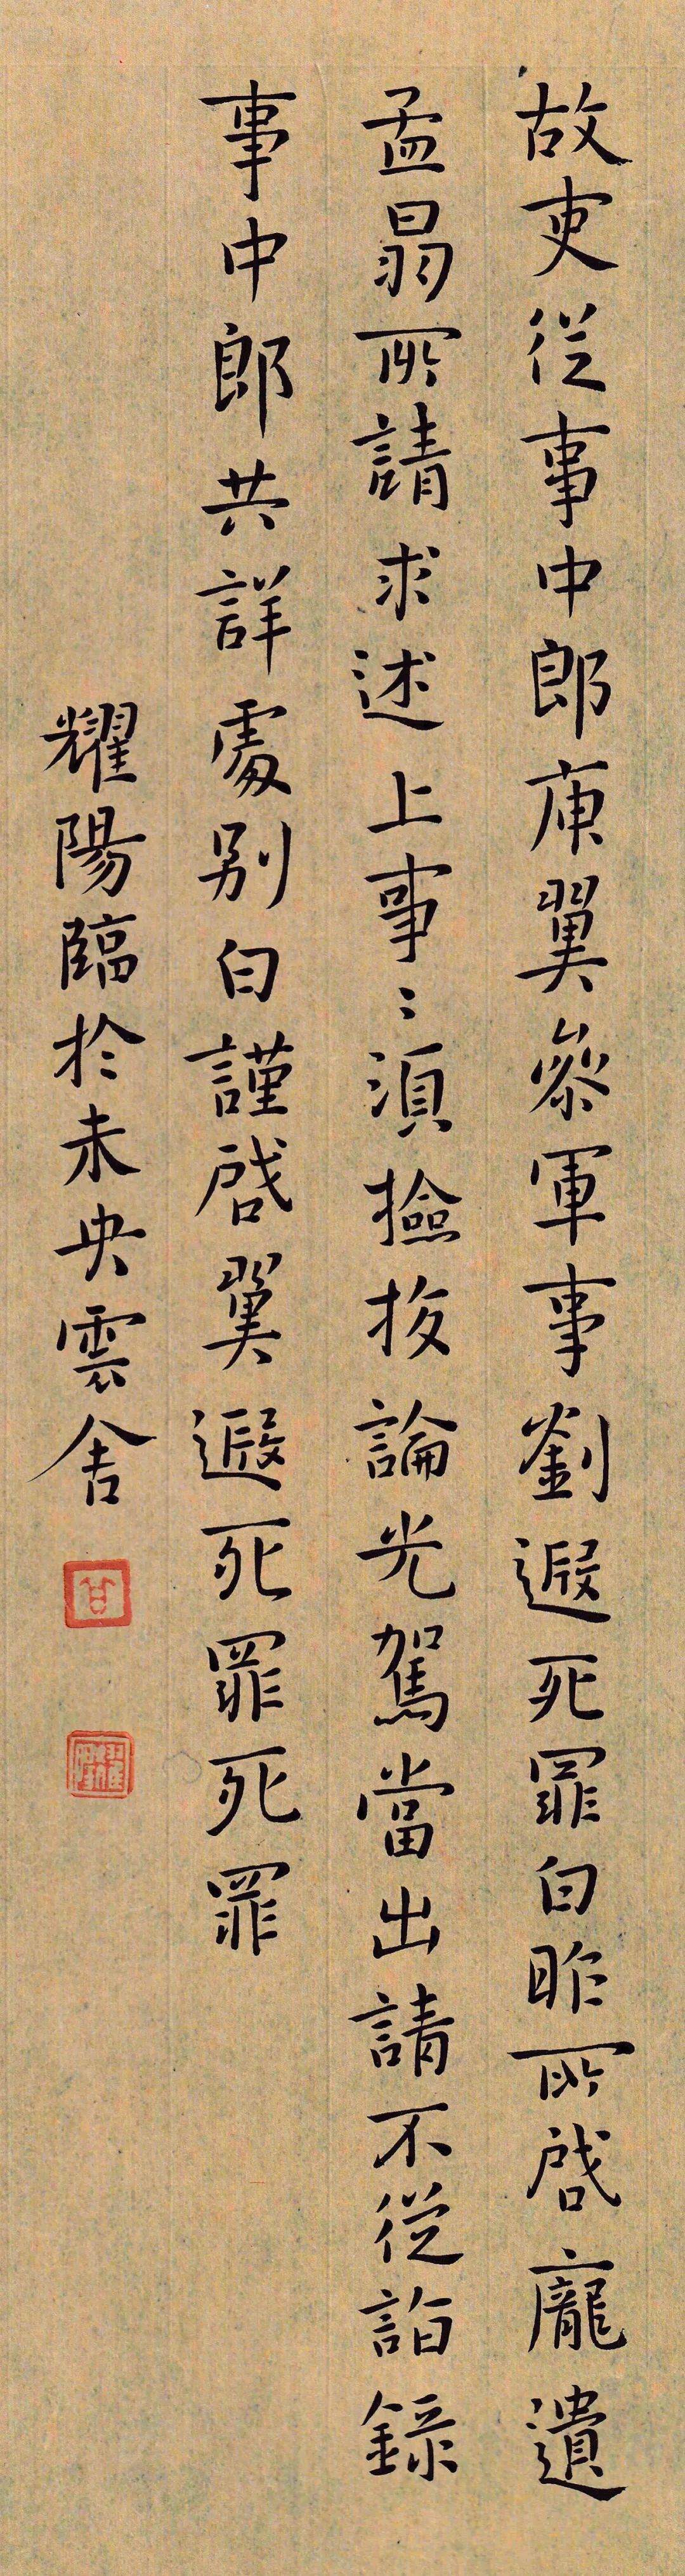 故吏從事中郎庾翼參軍事劉遐死罪白昨所啓龐遺
孟昺所請求述上事〻須撿扳論光駕當出請不從詣錄
事中郎共詳處別白謹啓翼遐死罪死罪
耀陽臨於未央雲舍
甘
耀陽